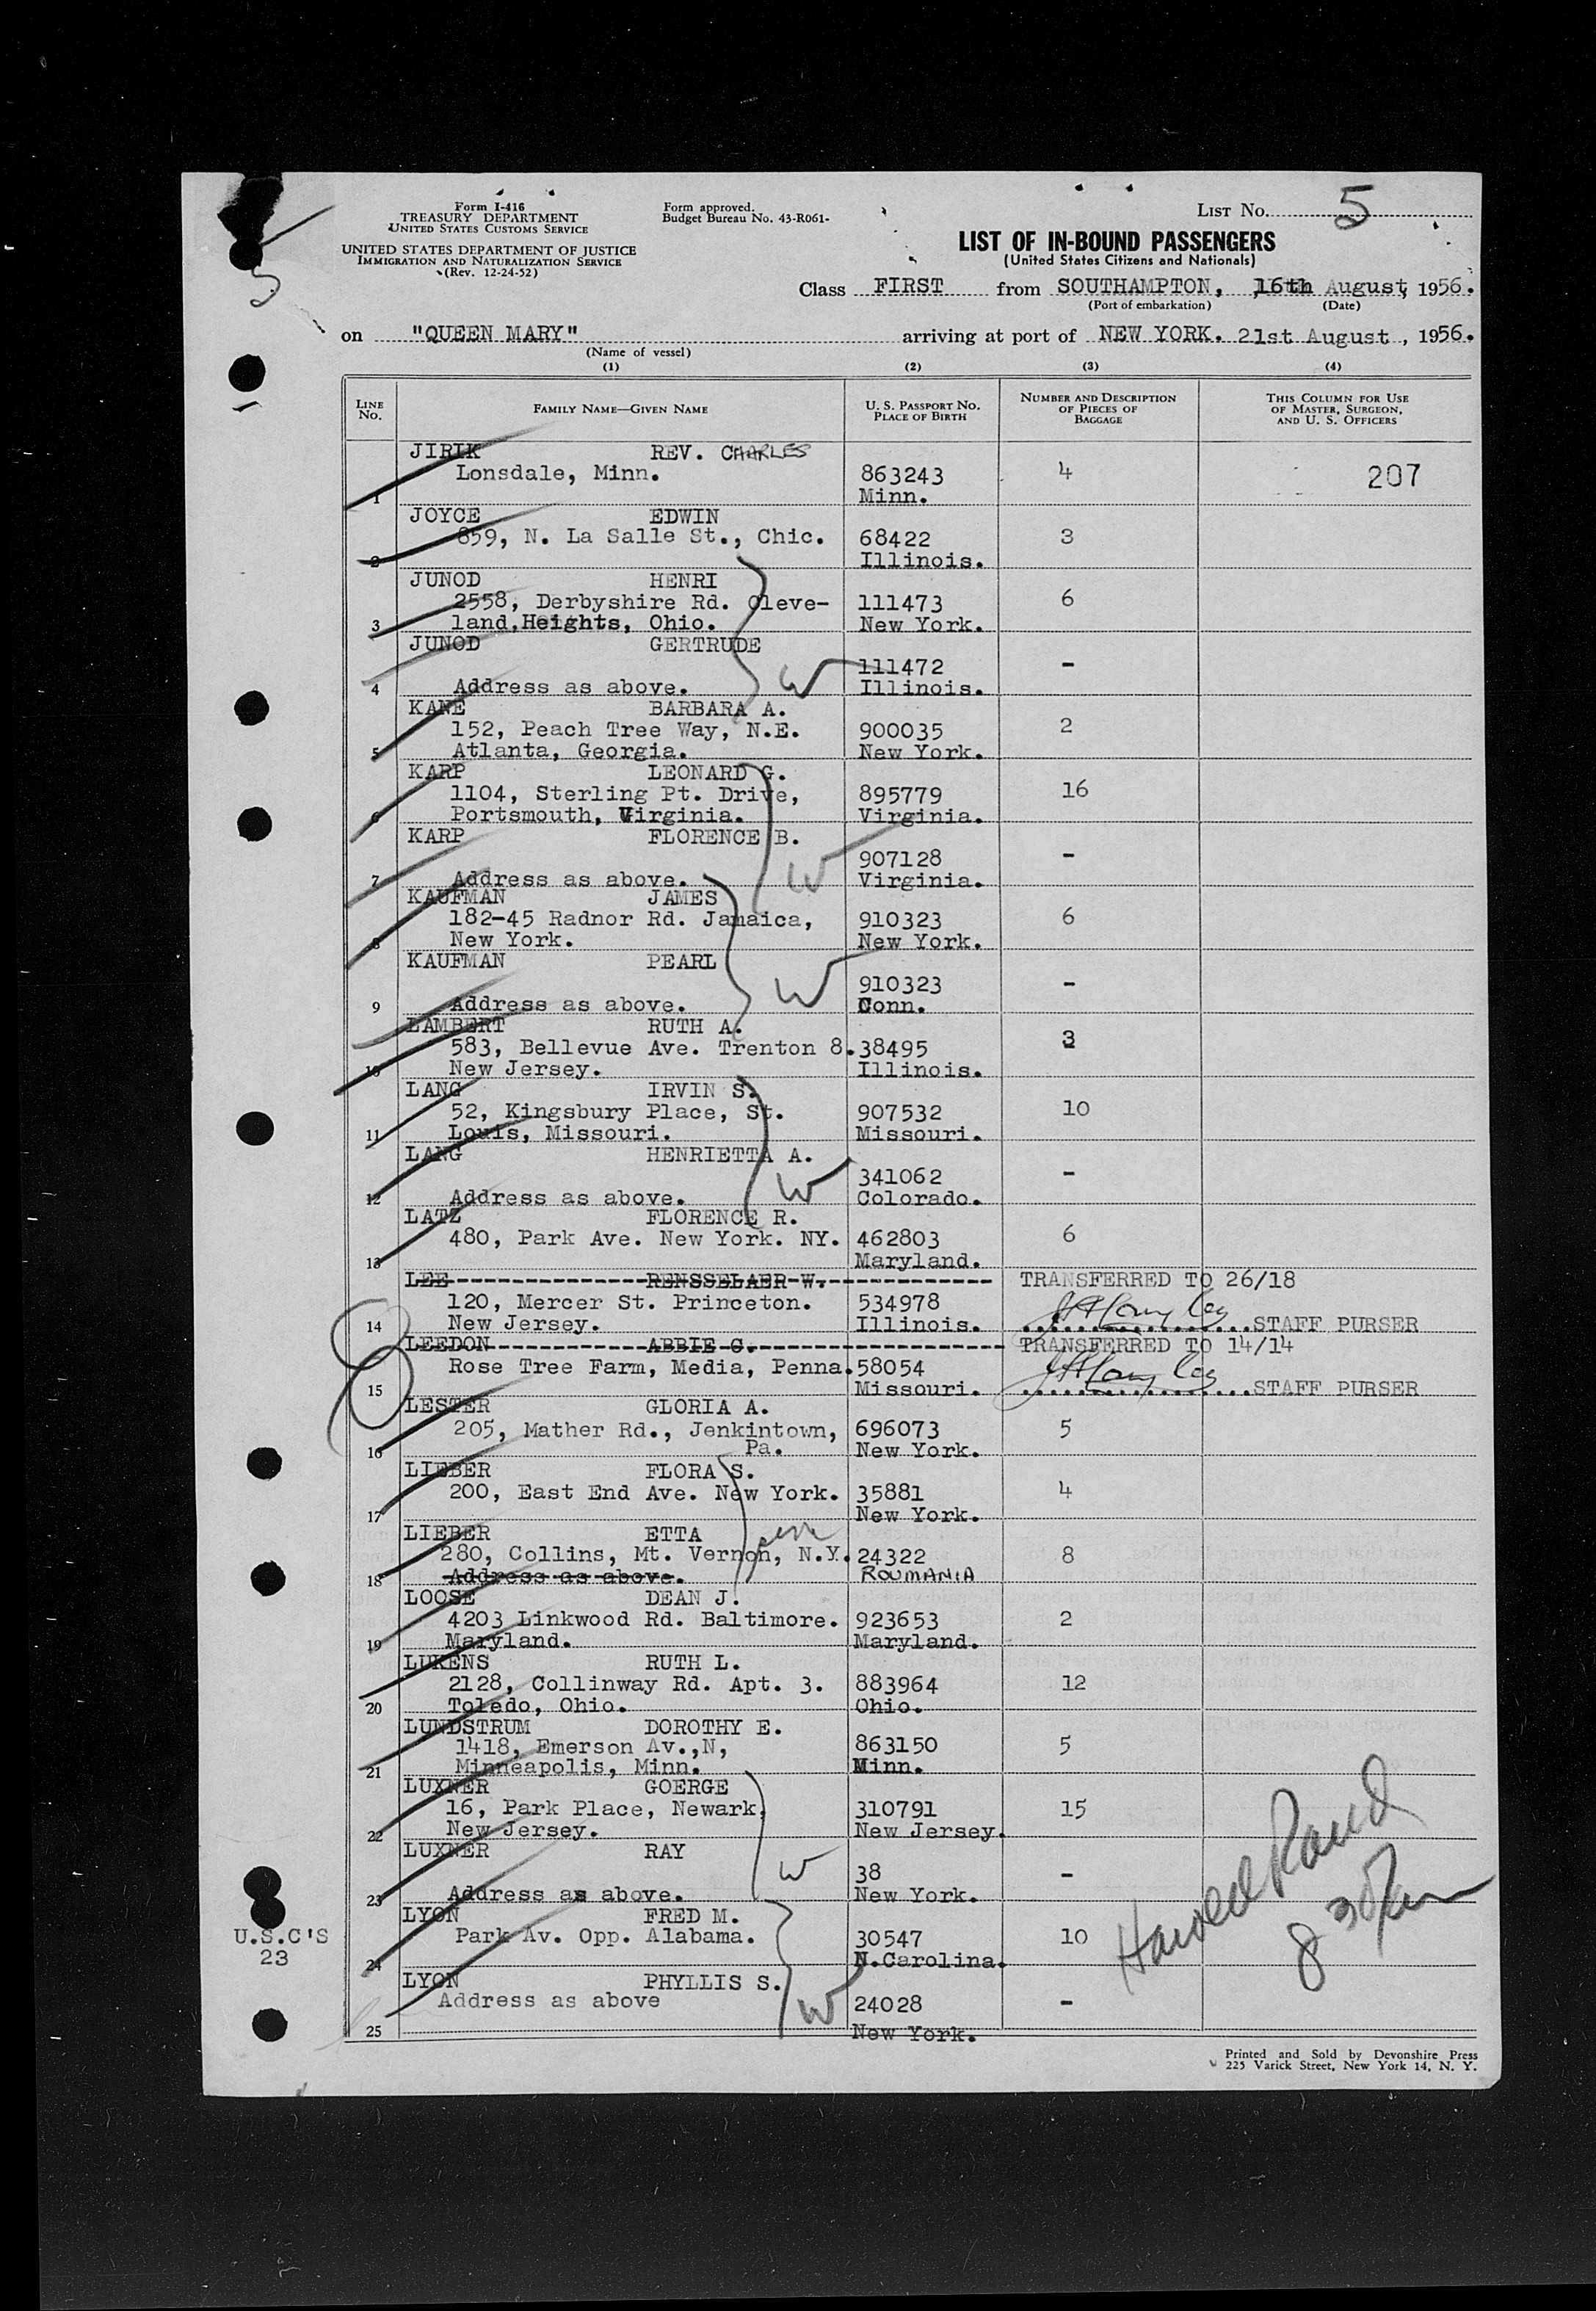 Form I-416
TREASURY DEPARTMENT
UNITED STATES CUSTOMS SERVICE
UNITED STATES DEPARTMENT OF JUSTICE
IMMIGRATION AND NATURALIZATION SERVICE
(Rev. 12-24-52)
Form approved.
Budget Bureau No. 43-R061-
LIST No. 5
LIST OF IN-BOUND PASSENGERS
(United States Citizens and Nationals)
Class FIRST from SOUTHAMPTON, 16th August, 1956.
(Port of embarkation) (Date)
on "QUEEN MARY" arriving at port of NEW YORK. 21st August, 1956.
(Name of vessel)
(1) (2) (3) (4)
LINE No. FAMILY NAME—GIVEN NAME U. S. PASSPORT No. PLACE OF BIRTH NUMBER AND DESCRIPTION OF PIECES OF BAGGAGE THIS COLUMN FOR USE OF MASTER, SURGEON, AND U. S. OFFICERS
JIRIK REV. CHARLES
Lonsdale, Minn. 863243 4 207
1 Minn.
JOYCE EDWIN
859, N. La Salle St., Chic. 68422 3
2 Illinois.
JUNOD HENRI
2558, Derbyshire Rd. Cleve- 111473 6
3 land, Heights, Ohio. New York.
JUNOD GERTRUDE
111472 -
4 Address as above. W Illinois.
KANE BARBARA A.
152, Peach Tree Way, N.E. 900035 2
5 Atlanta, Georgia. New York.
KARP LEONARD G.
1104, Sterling Pt. Drive, 895779 16
6 Portsmouth, Virginia. Virginia.
KARP FLORENCE B.
907128 -
7 Address as above. W Virginia.
KAUFMAN JAMES
182-45 Radnor Rd. Jamaica, 910323 6
8 New York. New York.
KAUFMAN PEARL
910323 -
9 Address as above. W Conn.
LAMBERT RUTH A.
583, Bellevue Ave. Trenton 8. 38495 3
10 New Jersey. Illinois.
LANG IRVIN S.
52, Kingsbury Place, St. 907532 10
11 Louis, Missouri. Missouri.
LANG HENRIETTA A.
341062 -
12 Address as above. W Colorado.
LATZ FLORENCE R.
480, Park Ave. New York. NY. 462803 6
13 Maryland.
LEE RENSSELAER W. TRANSFERRED TO 26/18
120, Mercer St. Princeton. 534978
14 New Jersey. Illinois. STAFF PURSER
LEEDON ABBIE C. TRANSFERRED TO 14/14
Rose Tree Farm, Media, Penna. 58054
15 Missouri. STAFF PURSER
LESTER GLORIA A.
205, Mather Rd., Jenkintown, 696073 5
16 Pa. New York.
LIEBER FLORA S.
200, East End Ave. New York. 35881 4
17 New York.
LIEBER ETTA
280, Collins, Mt. Vernon, N.Y. 24322 8
18 Address as above. ROUMANIA
LOOSE DEAN J.
4203 Linkwood Rd. Baltimore. 923653 2
19 Maryland. Maryland.
LUKENS RUTH L.
2128, Collinway Rd. Apt. 3. 883964 12
20 Toledo, Ohio. Ohio.
LUNDSTRUM DOROTHY E.
1418, Emerson Av.,N, 863150 5
21 Minneapolis, Minn. Minn.
LUXNER GOERGE
16, Park Place, Newark, 310791 15
22 New Jersey. New Jersey.
LUXNER RAY
38 -
23 Address as above. W New York.
LYON FRED M.
Park Av. Opp. Alabama. 30547 10
24 N.Carolina.
LYON PHYLLIS S.
Address as above W 24028 -
25 New York.
U.S.C'S
23
Harold Rand
8 30
Printed and Sold by Devonshire Press
225 Varick Street, New York 14, N. Y.